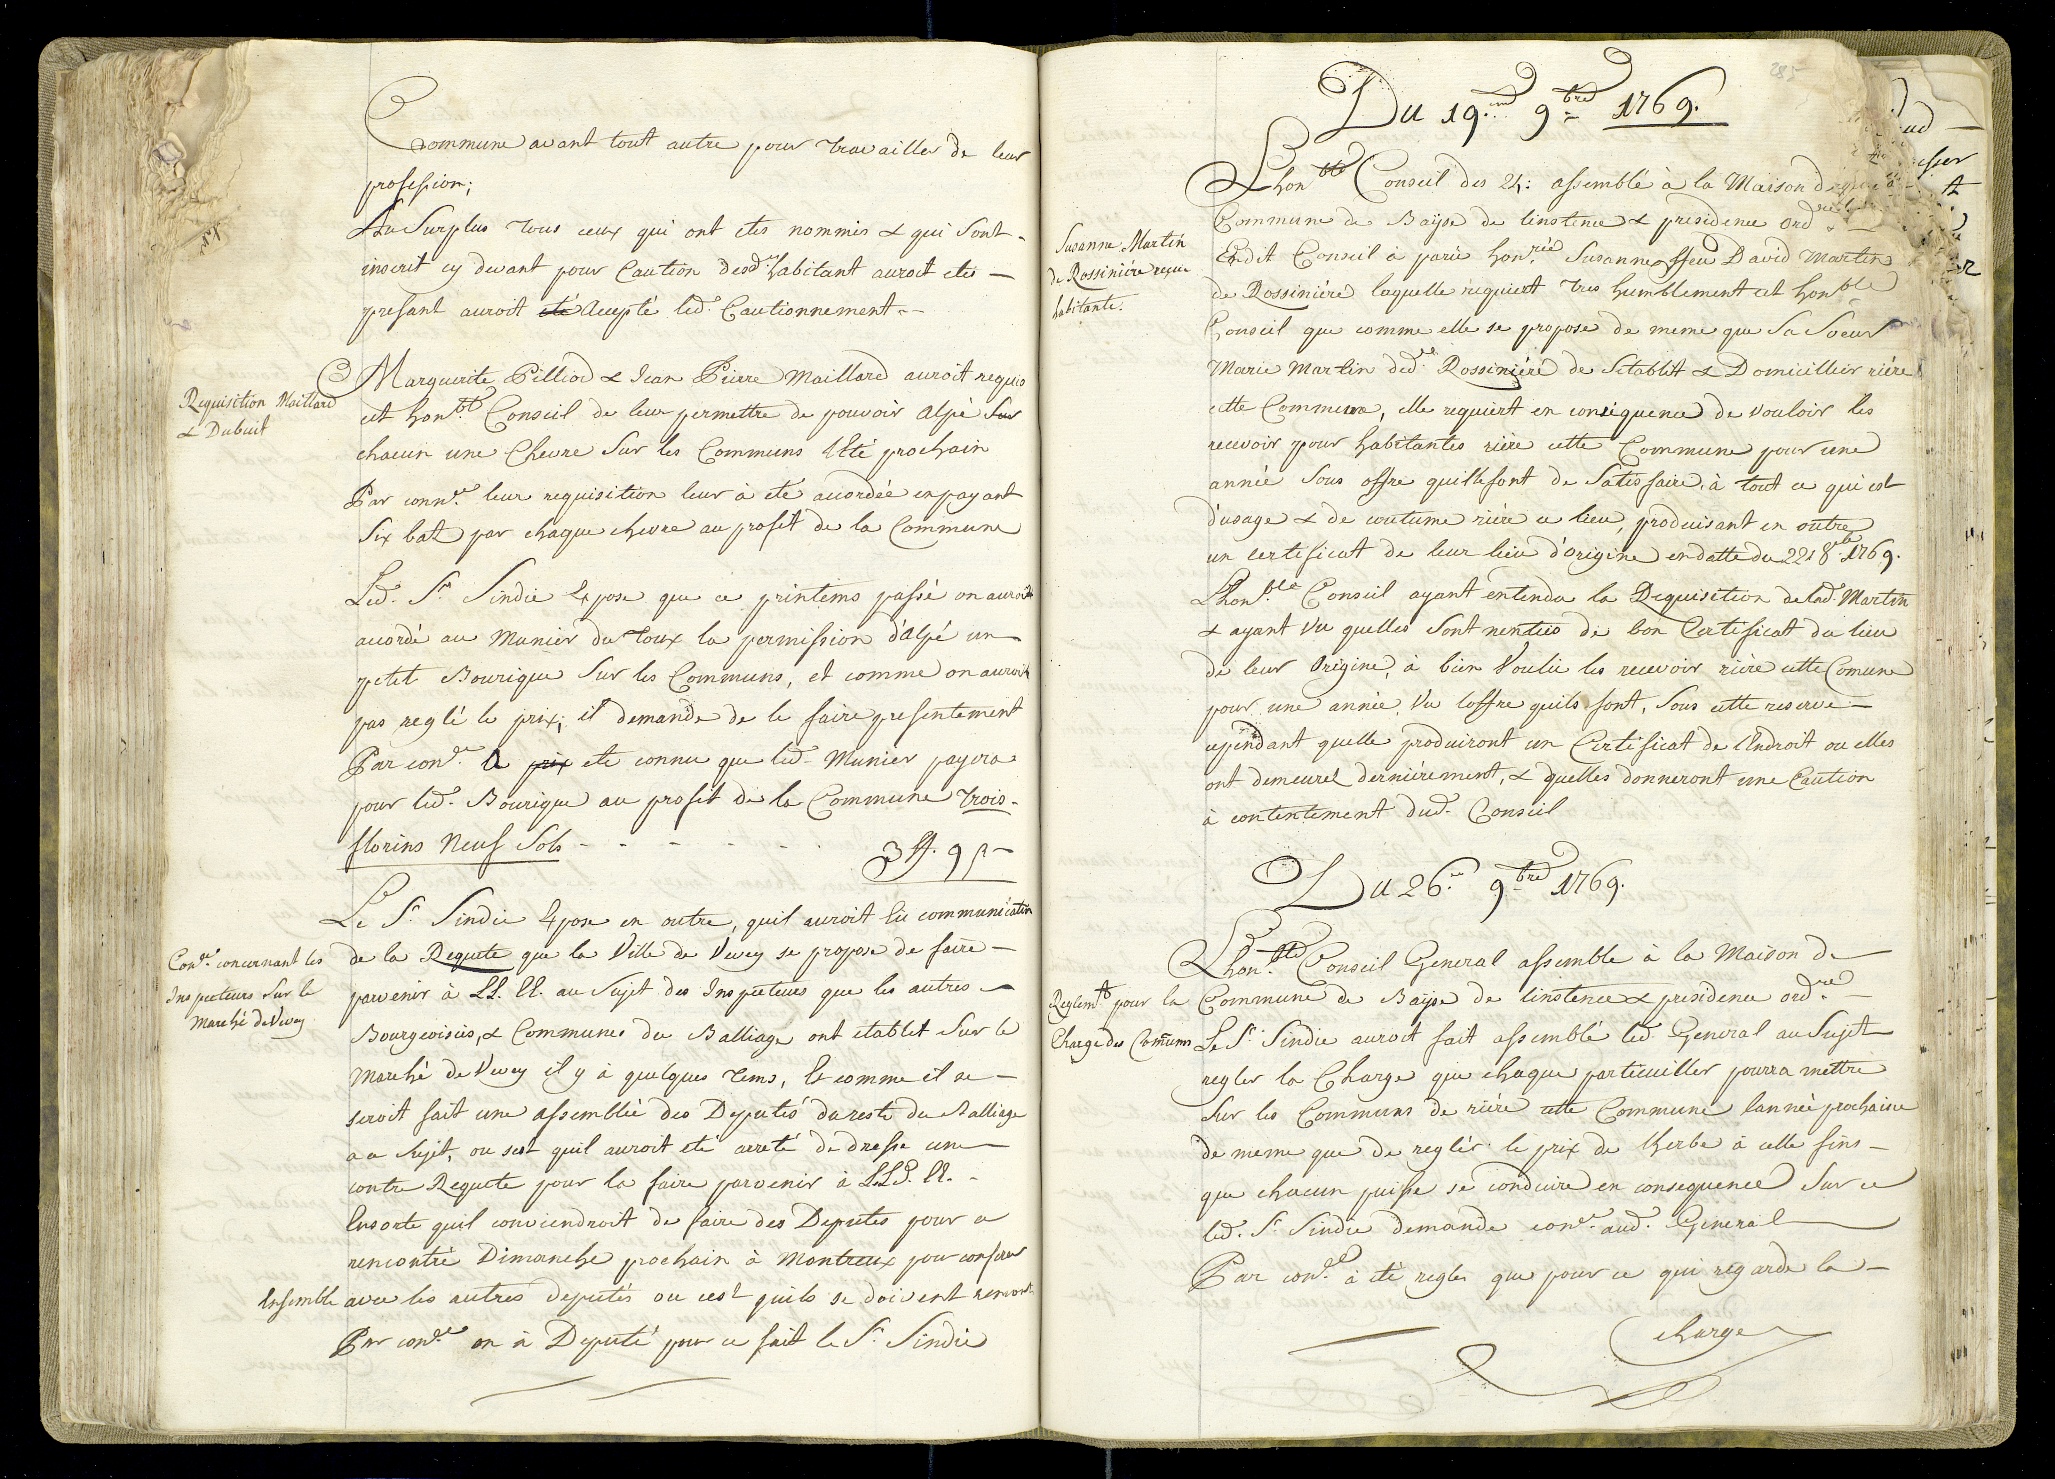 Commune avant tout autre pour travailler de leur
profession;
Au Surplus tous ceux qui ont etés nommés & qui sont
inscrit cy devant pour Caution desd. habitant auroit etés
present auroit eté Acepté led. Cautionnement.
Requisition Maillard
& Dubuit
Marguerite Pilliod & Jean Pierre Maillard auroit requis
cet honble Conseil de leur permettre de pouvoir alpé Sur
chacun une Chevre Sur les Communs l'Eté prochain
Par conn.ce leur requisition leur à eté accordée en payant
Six bat par chaque chevre au profit de la Commune
Led. Sr. Sindic Expose que ce printems passé on auroit
accordé au Munier du Toux la permission d'Alpé un
petit Bourique Sur les Communs, et comme on auroit
pas reglé le prix; il demande de le faire presentement
Par con.ce A prix eté connu que led. Munier payera
pour led. Bourique au profit de la Commune trois
florins Neuf Sols - - - - - - 3 ff. 9 s
Le Sr. Sindic Expose en outre, quil auroit Eü communication
Con.ce concernant les
Inspecteurs Sur le
Marché de Vevey
de la Requete que la Ville de Vevey se propose de faire
parvenir à LL. EE. au Sujet des Inspecteurs que les autres
Bourgeoisies, & Communes du Balliage ont etablit Sur le
Marché de Vevey il y à quelques tems, Et comme il se
seroit fait une assemblée des Deputés du reste du Balliage
a ce Sujet, ou sest quil auroit eté areté de dressé une
contre Requete pour la faire parvenir à LL. EE.
Ensorte quil conviendroit de faire des Deputés pour ce
rencontré Dimanche prochain à Montreux pour conferer
Ensemble avec les autres deputés ou cest quils se doivent rencont.
Par con.ce on à Deputé pour ce fait le Sr. Sindic
285
Du 19.me 9.bre 1769.
Lhon.ble Conseil des 24: assemblé à la Maison de
Commune de Baÿse de linstence & presidence ord.re
Susanne Martin
de Rossiniére reçue
habitante.
Endit Conseil à parû hon.rée Susanne ffeu David Martin
de Rossiniére laquelle requiert tres humblement cet honble
Conseil que comme elle se propose de meme que Sa Soeur
Marie Martin dud. Rossiniére de S'etablit & Domicillier riére
cette Commune, elle requiert en conséquence de vouloir les
recevoir pour habitantes riére cette Commune pour une
année Sous offre quelles font de Satisfaire à tout ce qui est
d'usage & de coutume riére ce lieu, produisant en outre
un certificat de leur lieu d'origine en datte du 22e 8bre 1769.
Lhon.ble Conseil ayant entendu la Requisition de lad. Martin
& ayant vu quelles Sont nenties de bon Certificat du lieu
de leur Origine, à bien Voulu les recevoir riére cette Comune
pour une année, Vu loffre quils font, Sous cette reserve
cependant quelle produiront un Certificat de lEndroit ou elles
ont demeurez derniérement, & quelles donneront une Caution
à contentement dud. Conseil
Du 26.e 9.bre 1769.
Lhon.ble Conseil General assemblé à la Maison de
Reglem.t pour la
Charge des Comuns
Commune de Baÿse de linstence & presidence ord.re
Le Sr. Sindic auroit fait assemblé led. General au Sujet
regler la Charge que chaque particuillier pourra mettre
Sur les Communs de riére cette Commune lannée prochaine
de meme que de reglér le prix de lherbe à celle fins
que chacun puisse se conduire en consequence Sur ce
led. Sr. Sindic demande con.ce aud. General
Par con.ce à eté reglé que pour ce qui regarde la
charge